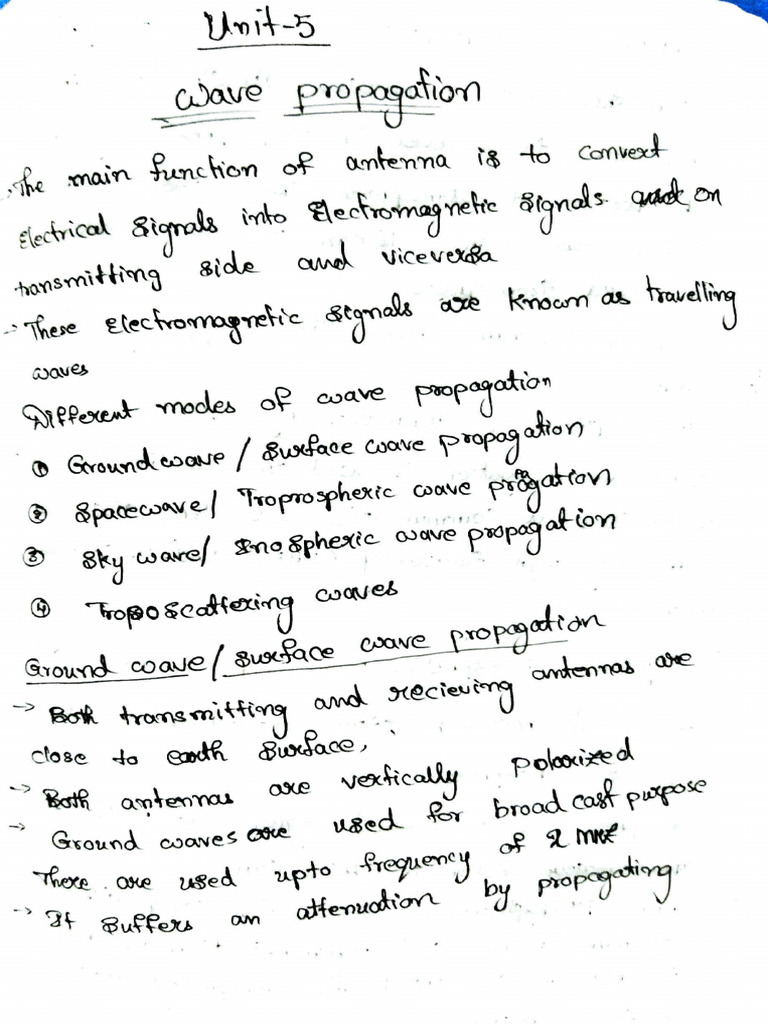 Unit-5
wave propagation
The main function of antenna is to convert
Electrical signals into Electromagnetic signals on
transmitting side and viceversa
-> These Electromagnetic signals are known as travelling
waves
Different modes of wave propagation
① Ground wave / Surface wave propagation
② Spacewave / Troprospheric wave progation
③ Sky wave / Inospheric wave propagation
④ Troposcattering waves
Ground wave / surface wave propagation
-> Both transmitting and recieving antennas are
close to earth surface,
-> Both antennas are vertically polarized
-> Ground waves are used for broad cast purpose
There are used upto frequency of 2
-> It suffers an attenuation by propagating